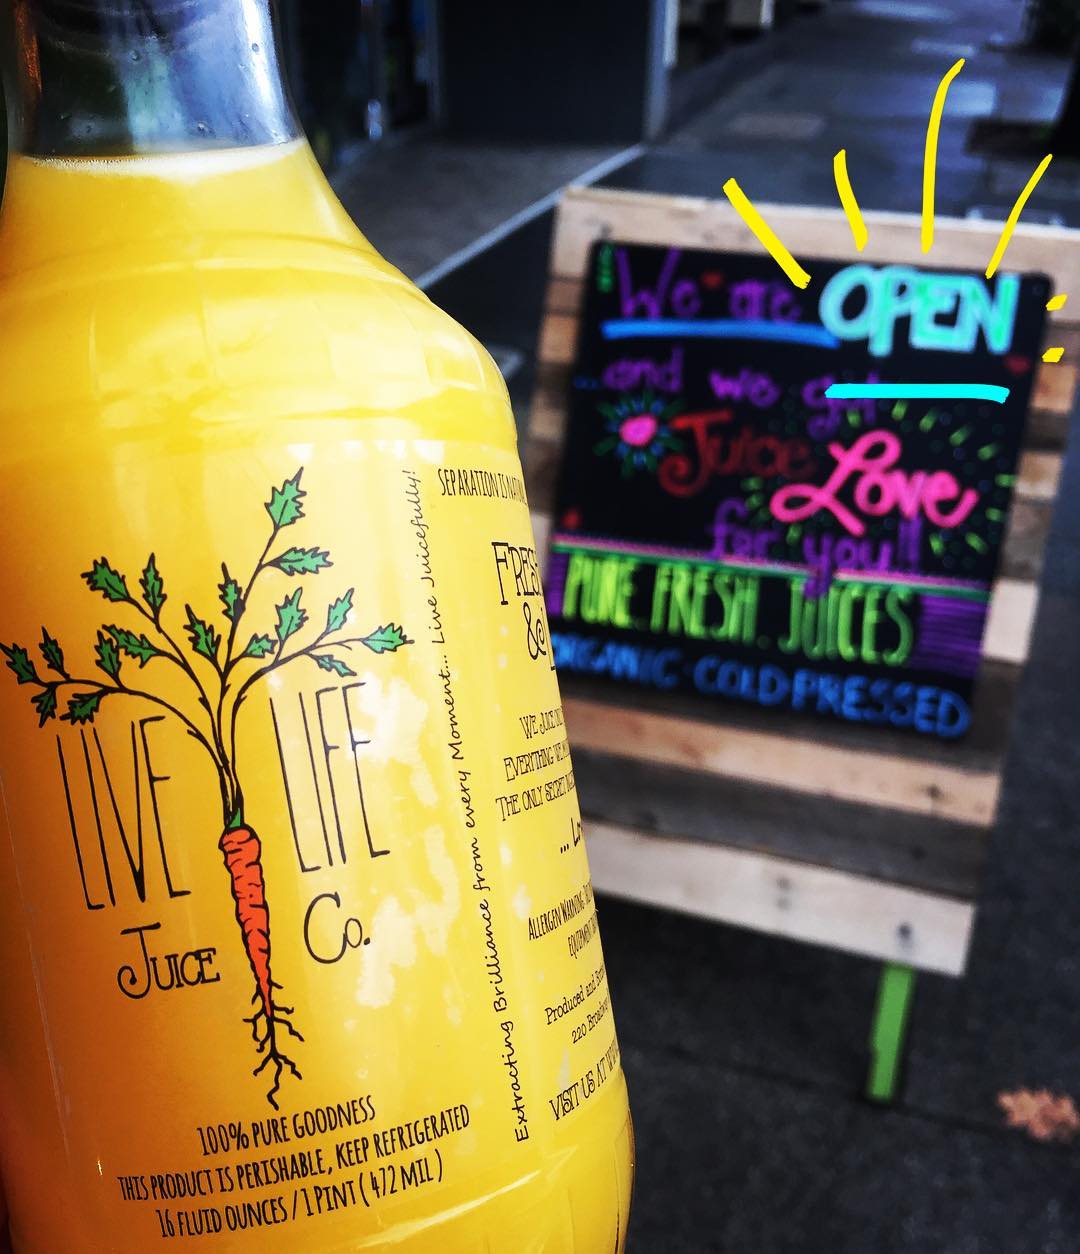 LIVE LIFE
JUICE Co.
100% PURE GOODNESS
THIS PRODUCT IS PERISHABLE, KEEP REFRIGERATED
16 FLUID OUNCES / 1 PINT ( 472 MIL )
Extracting Brilliance from every Moment... Live Juicefully!
SEPARATION IS
&
WE JUICE
EVERYTHING WE
THE ONLY SECRET
...
ALLERGEN WARNING:
Produced and
220
VISIT US AT
We are OPEN
...and we got
Juice Love
for you!!
PURE. FRESH. JUICES
ORGANIC · COLD-PRESSED